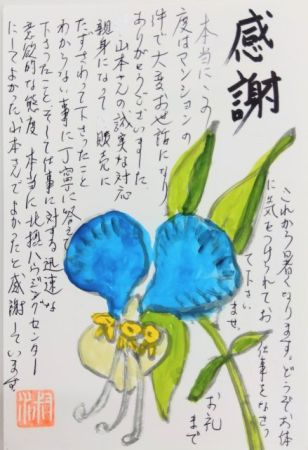 感謝
本当にこの
度はマンションの
件で大変お世話になり
ありがとうございました
山本さんの誠実な対応
親身になって販売に
たずさわって下さったこと
わからない事に丁寧に答えて
下さったこと そして仕事に対する迅速な
意欲的な態度 本当に北摂ハウジングセンター
にしてよかった 山本さんでよかったと感謝しています
これから暑くなります。どうぞお体
に気をつけられてお仕事をなさっ
て下さい
ませ。
お礼
まで